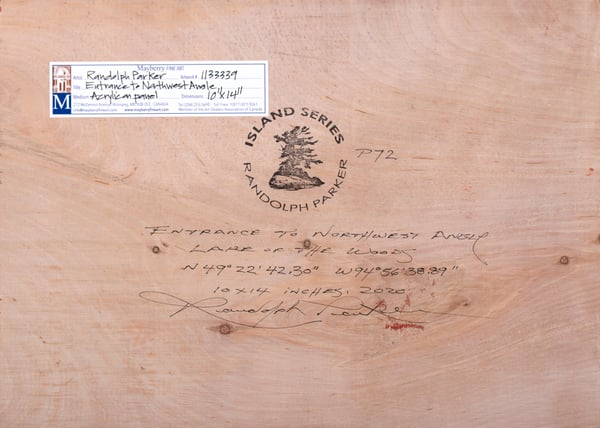 Mayberry FINE ART
Artist Randolph Parker Artwork # 1133339
Title Entrance to Northwest Angle
Medium Acrylic on panel Dimensions 10"x14"
212 McDermot Avenue Winnipeg, MB R3B 0S3, CANADA Tel (204) 255-5690 Toll Free 1(877) 871-9261
info@mayberryfineart.com www.mayberryfineart.com Member of the Art Dealers Association of Canada
M
ISLAND SERIES
RANDOLPH PARKER
P72
ENTRANCE TO NORTHWEST ANGLE
LAKE OF THE WOODS
N 49° 22' 42.30" W 94° 56' 38.89"
10 x 14 INCHES, 2020
Randolph Parker